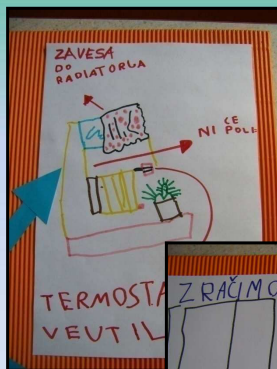 ZAVESA
DO
RADIATORJA
NI
TERMOSTA
VEUTIL
ZRAČIMO